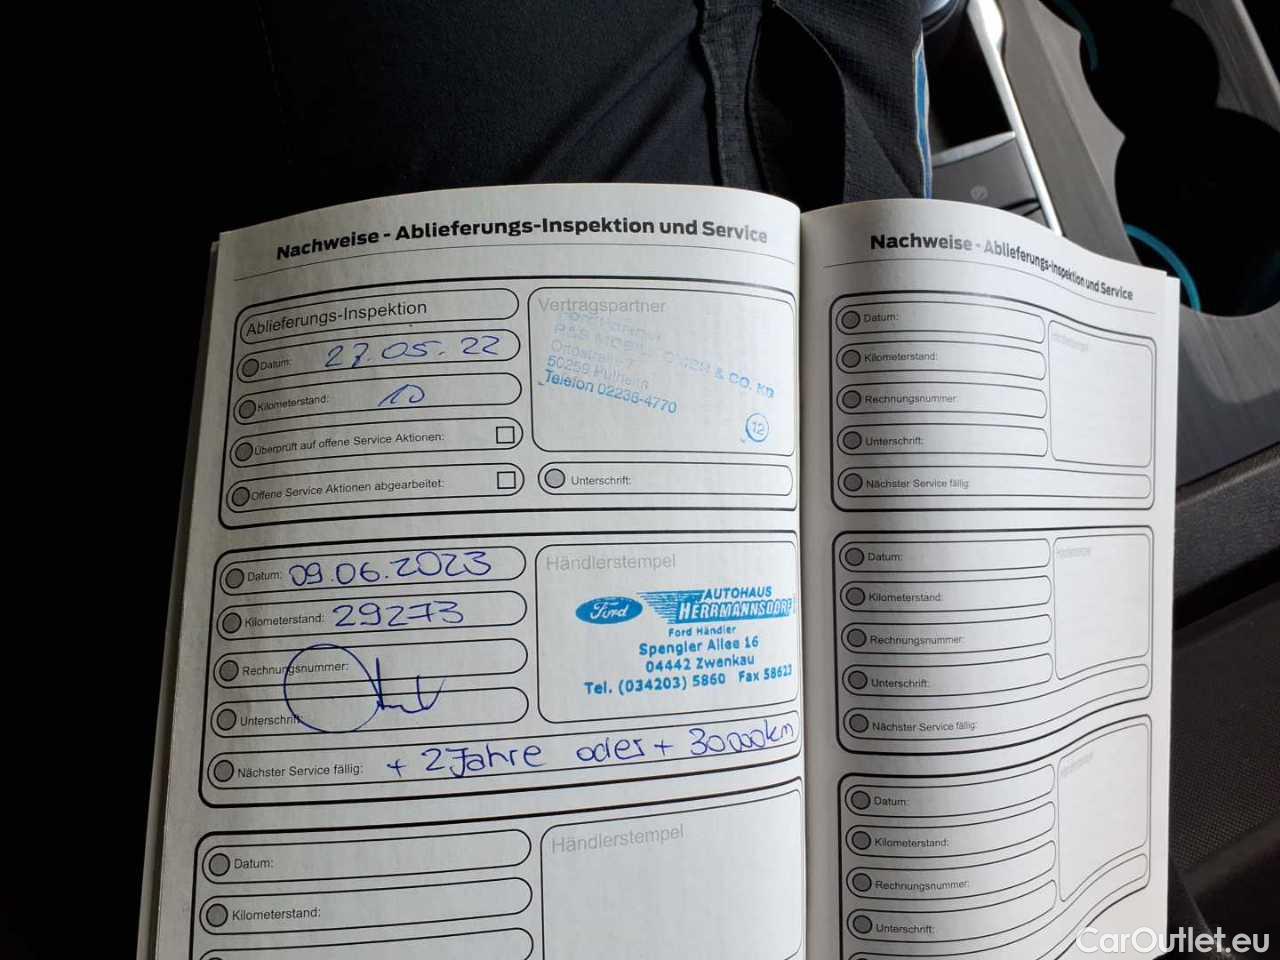 Nachweise - Ablieferungs-Inspektion und Service
Ablieferungs-Inspektion
Datum: 27.05.22
Kilometerstand: 10
Überprüft auf offene Service Aktionen:
Offene Service Aktionen abgearbeitet:
Vertragspartner
& CO. KG
50259 Pulheim
Telefon 02238-4770
12
Unterschrift:
Datum: 09.06.2023
Kilometerstand: 29273
Rechnungsnummer:
Unterschrift:
Nächster Service fällig: + 2 Jahre oder + 30000km
Händlerstempel
Ford
AUTOHAUS
HERRMANNSDORF
Ford Händler
Spengler Allee 16
04442 Zwenkau
Tel. (034203) 5860 Fax 58623
Datum:
Kilometerstand:
Händlerstempel
Nachweise - Ablieferungs-Inspektion und Service
Datum:
Kilometerstand:
Rechnungsnummer:
Unterschrift:
Nächster Service fällig:
Händlerstempel
Datum:
Kilometerstand:
Rechnungsnummer:
Unterschrift:
Nächster Service fällig:
Händlerstempel
Datum:
Kilometerstand:
Rechnungsnummer:
Unterschrift:
Händlerstempel
CarOutlet.eu